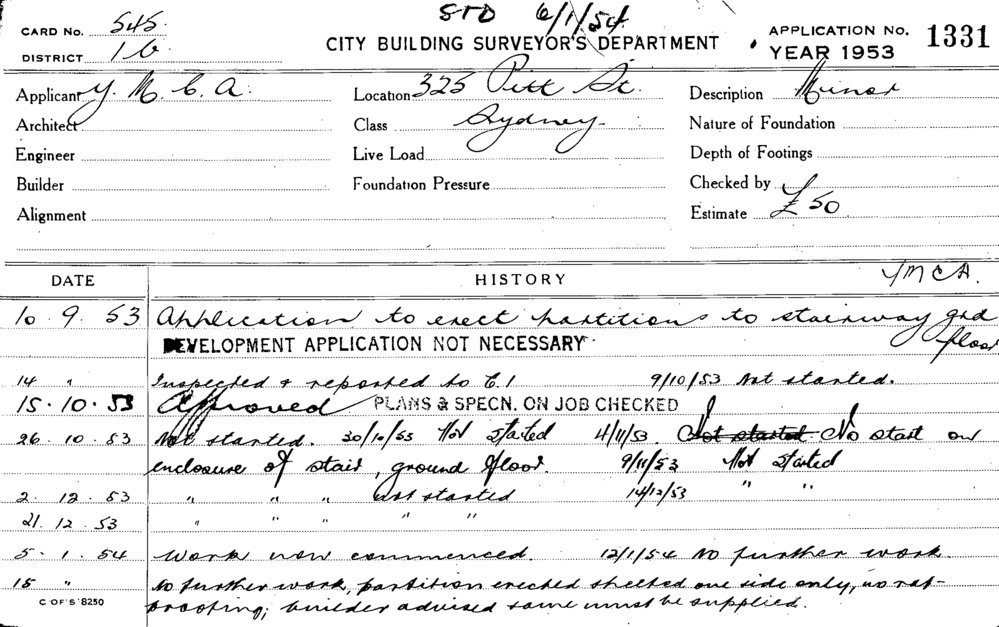 STD 6/1/54.
CARD No. 545.
DISTRICT 16
CITY BUILDING SURVEYOR'S DEPARTMENT
APPLICATION No. 1331
YEAR 1953
Applicant Y. M. C. A. Location 325 Pitt St. Description Minor
Architect Class Sydney. Nature of Foundation
Engineer Live Load Depth of Footings
Builder Foundation Pressure Checked by
Alignment Estimate £50
DATE HISTORY YMCA.
10 . 9 . 53 Application to erect partitions to stairway grd
floor
DEVELOPMENT APPLICATION NOT NECESSARY
14 " Inspected & reported to C.I 9/10/53 Not started.
15 . 10 . 53 Approved PLANS & SPECN. ON JOB CHECKED
26 . 10 . 53 Not started. 30/10/53 Not Started 4/11/53. Not started. No start on
enclosure of stair, ground floor. 9/11/53 Not Started
2 . 12 . 53 " " " Not started 14/12/53 " "
21 . 12 . 53 " " " " "
5 . 1 . 54 Work now commenced. 12/1/54 No further work
15 " No further work, partition erected sheeted one side only, no rat-
proofing; builder advised same must be supplied.
C OF S 8250